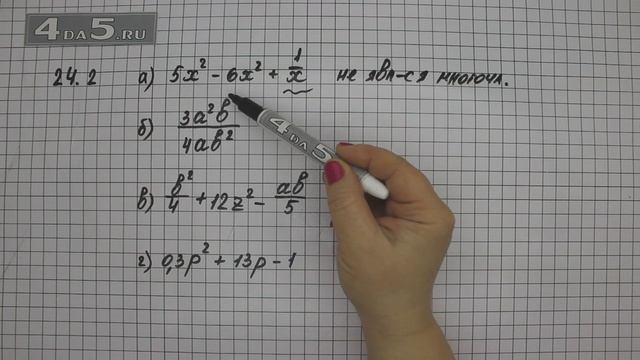 4DA5.RU
24.2 а) 5x² - 6x² + 1/x не явл-ся многочл.
б) 3a²b/4ab²
в) b²/4 + 12z² - ab/5
г) 0,3p² + 13p - 1
4DA5